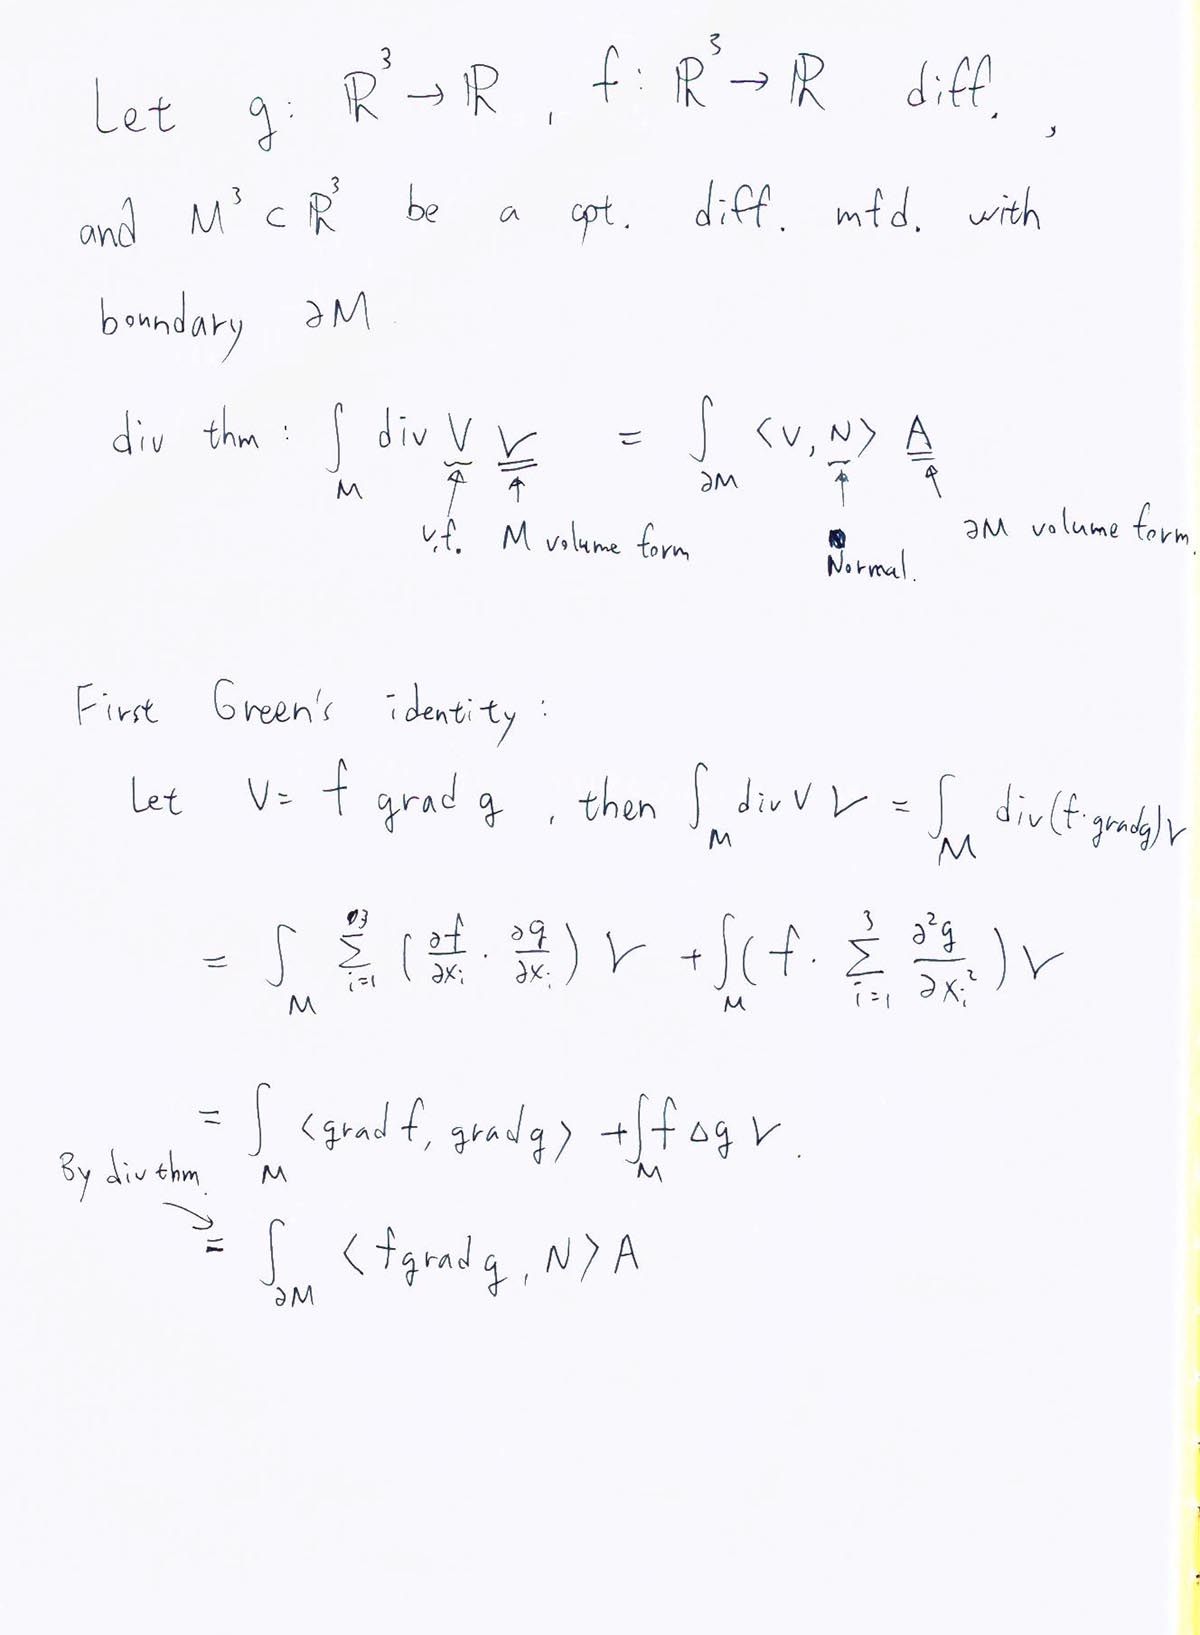 Let g: ℝ³ → ℝ , f: ℝ³ → ℝ diff. ,
and M³ ⊂ ℝ³ be a cpt. diff. mfd. with
boundary ∂M.
div thm : ∫_M div V V = ∫_∂M <V, N> A
v.f. M volume form Normal. ∂M volume form.
First Green's identity :
Let V = f grad g , then ∫_M div V V = ∫_M div(f·grad g) V
= ∫_M Σ_{i=1}^{3} (∂f/∂x_i · ∂g/∂x_i) V + ∫_M (f · Σ_{i=1}^{3} ∂²g/∂x_i²) V
= ∫_M <grad f, grad g> + ∫_M f Δg V.
By div thm.
= ∫_∂M <f grad g, N> A